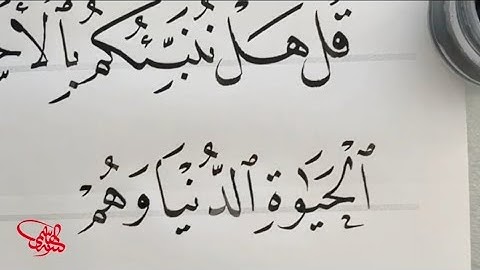 قُلْ هَلْ نُنَبِّئُكُمْ بِٱلْأَخْ
ٱلْحَيَوٰةِ ٱلدُّنْيَا وَهُمْ